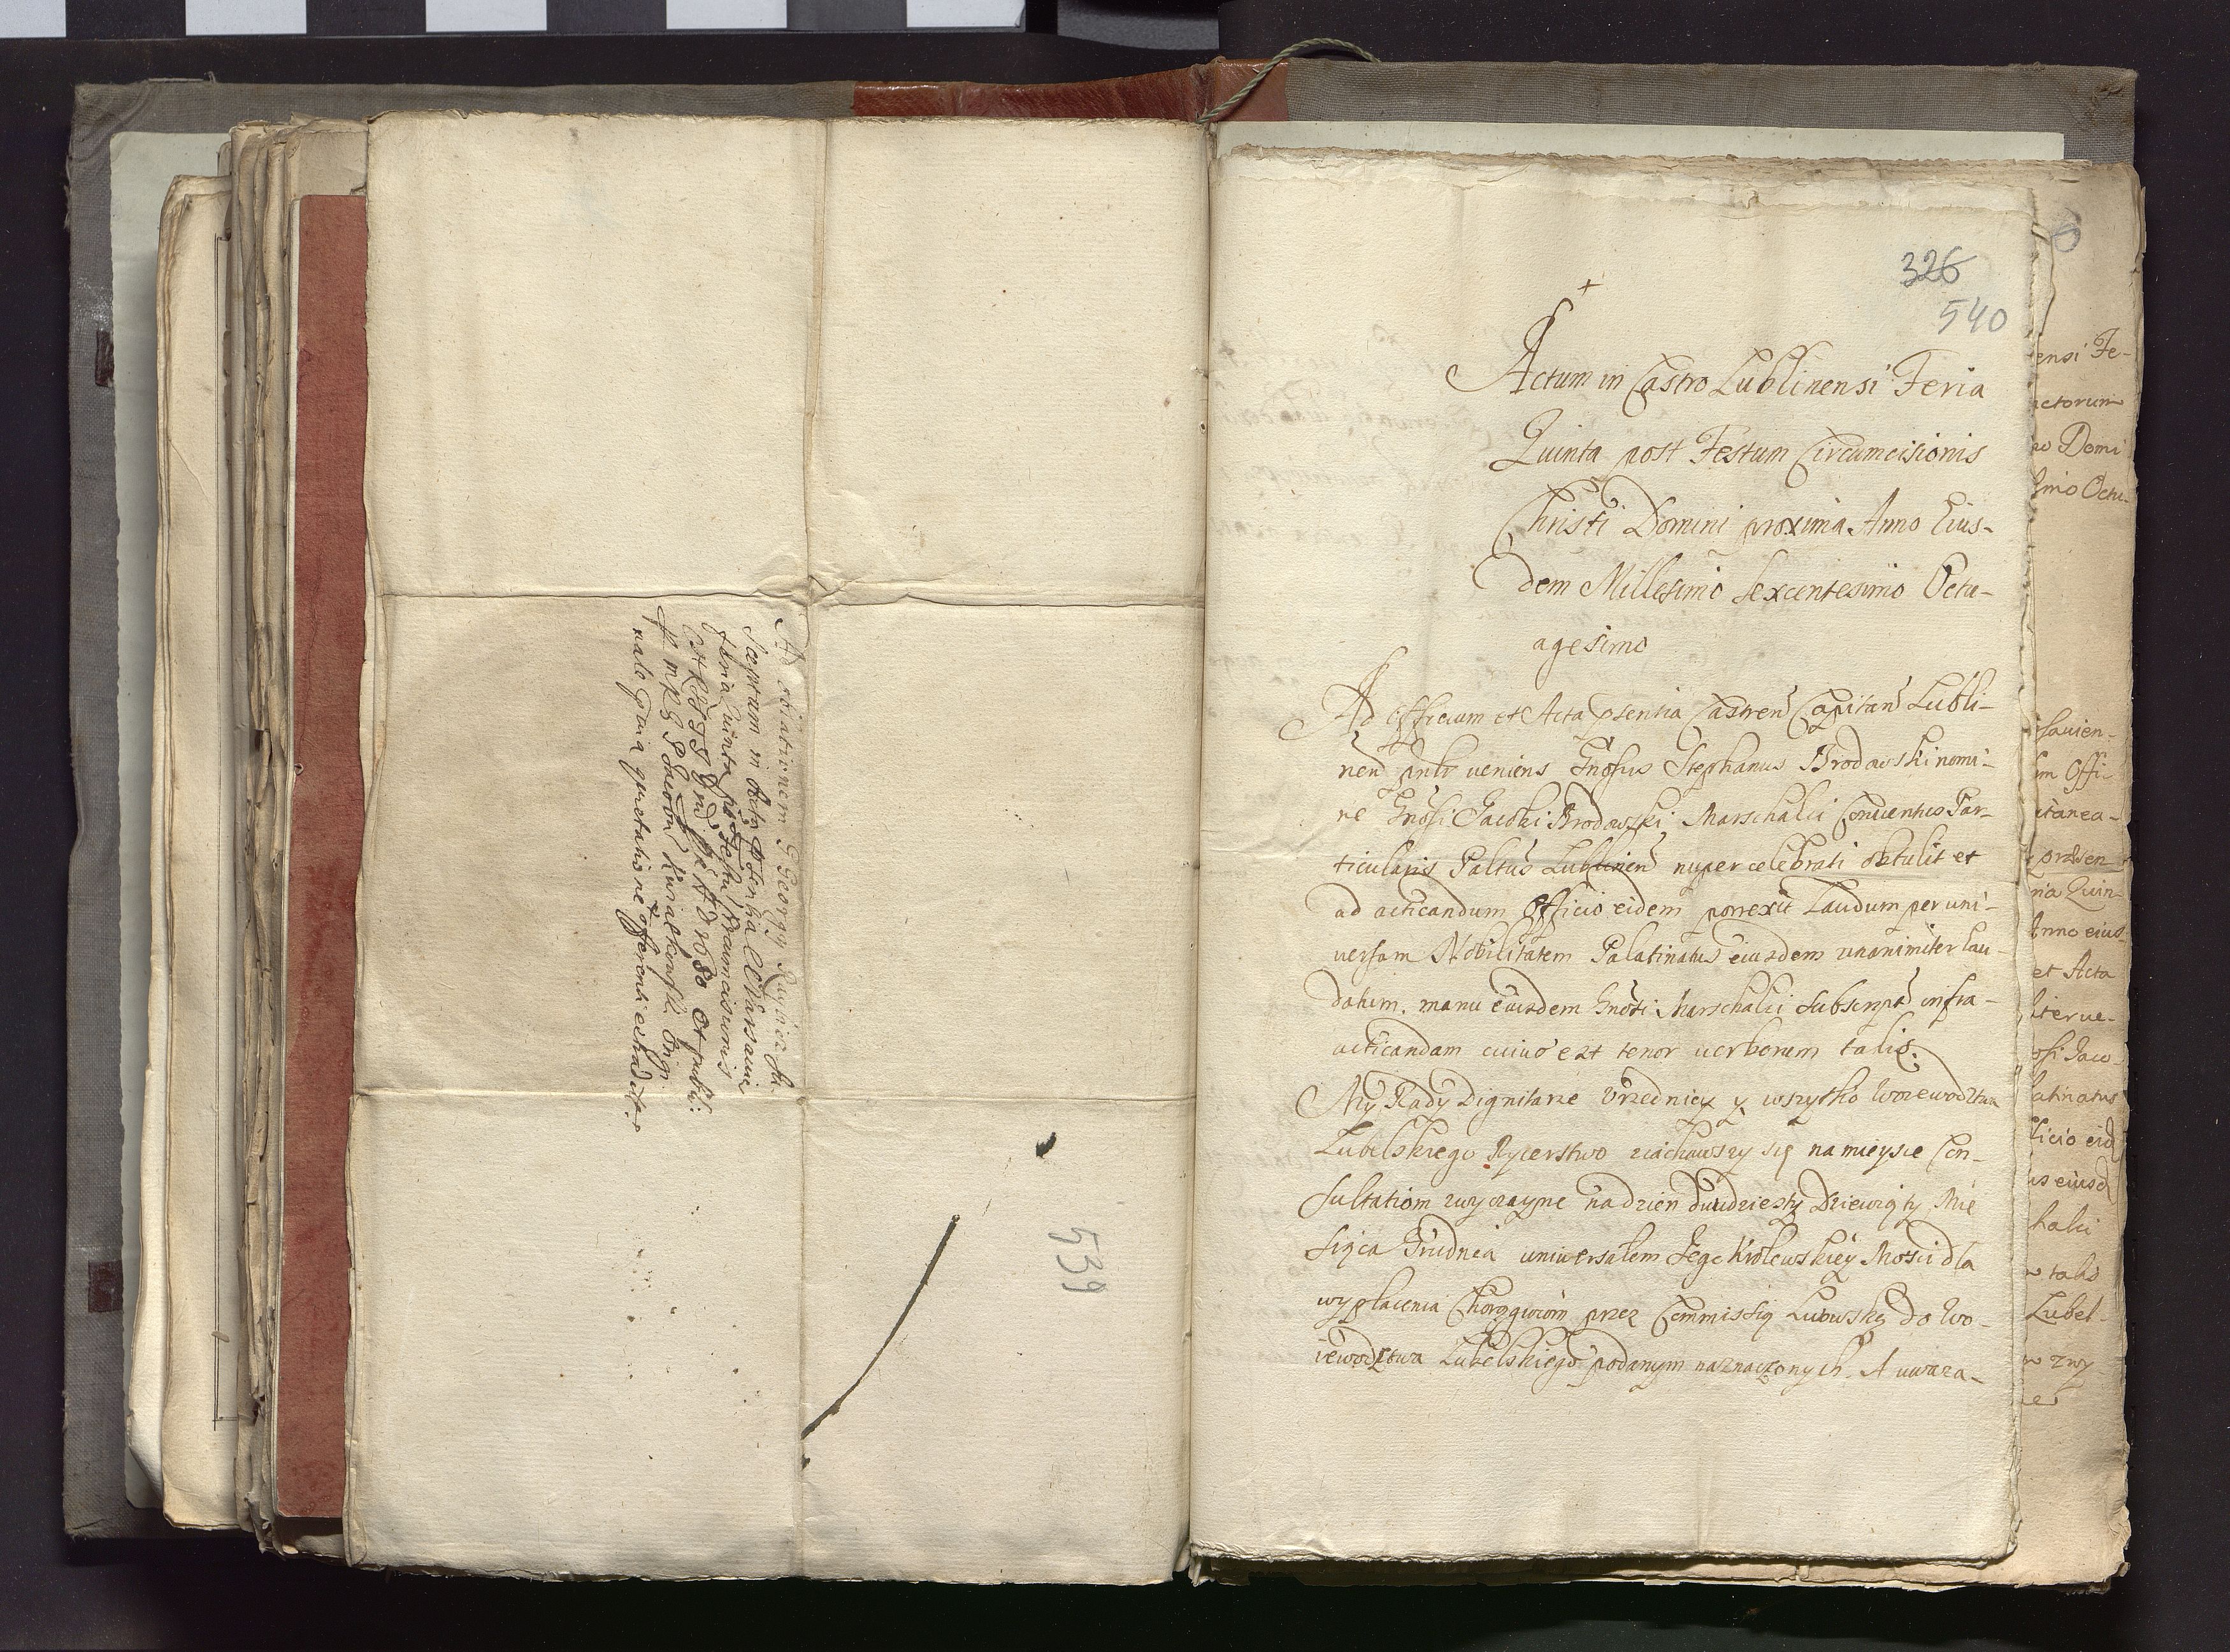 Ad oblationem G Georgy
Sceptum in Acta Castrensia Varsauien
feria Quinta post Festum Circumcisionis
A D 1680
539
326
540
Actum in Castro Lublinensi Feria
Quinta post Festum Circumcisionis
Christi Domini proxima Anno Eius-
dem Millesimo Sexcentesimo Octu-
agesimo
Ad Officium et Acta pñtia Castreñ Capitañ Lubli-
neñ pnlr veniens Gnosus Stephanus Brodowski nomi-
ne Gnosi Jacobi Brodowski Marschalci Conventus Par-
ticularis Paltus Lublineñ nuper celebrati obtulit et
ad acticandum Officio eidem porrexit Laudum per uni-
versam Nobilitatem Palatinatus eiusdem unanimiter lau-
datum, manu eiusdem Gnosi Marschalci subscript infra-
acticandam cuius est tenor verborum talis.
My Rady Dignitarze Vrzednicy y wszytko Woiewodztwa
Lubelskiego Rycerstwo ziachawszy się na mieysce Con-
sultatiom zwyczayne na dzien dwudziesty Dziewiąty Mie
siąca Grudnia uniwersałem Jego Krolewskiey Mosci dla
wypłacenia Chorągwiom przez Commissią Lwowską do Wo-
iewodztwa Lubelskiego podanym naznaczonych. A uwaza-
ensi Fe-
actorum
Domi
Octu-
Offi
itanea-
præsen
ria Quin-
Anno eius
et Acta
liter ve-
osi Jaco-
latinatus
ficio eid
us eiusd
halci
talis
Lubel-
zwy